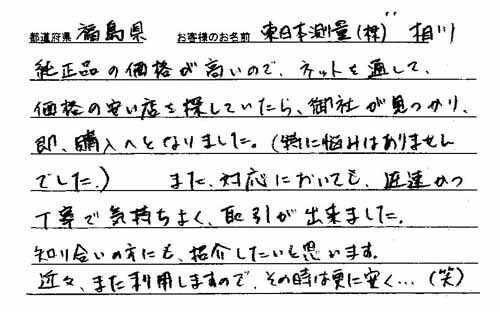 都道府県 福島県 お客様のお名前 東日本測量(株) 相川
純正品の価格が高いので、ネットを通して、
価格の安い店を探していたら、御社が見つかり、
即、購入へとなりました。(特に悩みはありません
でした。) また、対応においても、迅速かつ
丁寧で気持ちよく、取引が出来ました。
知り合いの方にも、紹介したいと思います。
近々、また利用しますので、その時は更に安く…(笑)